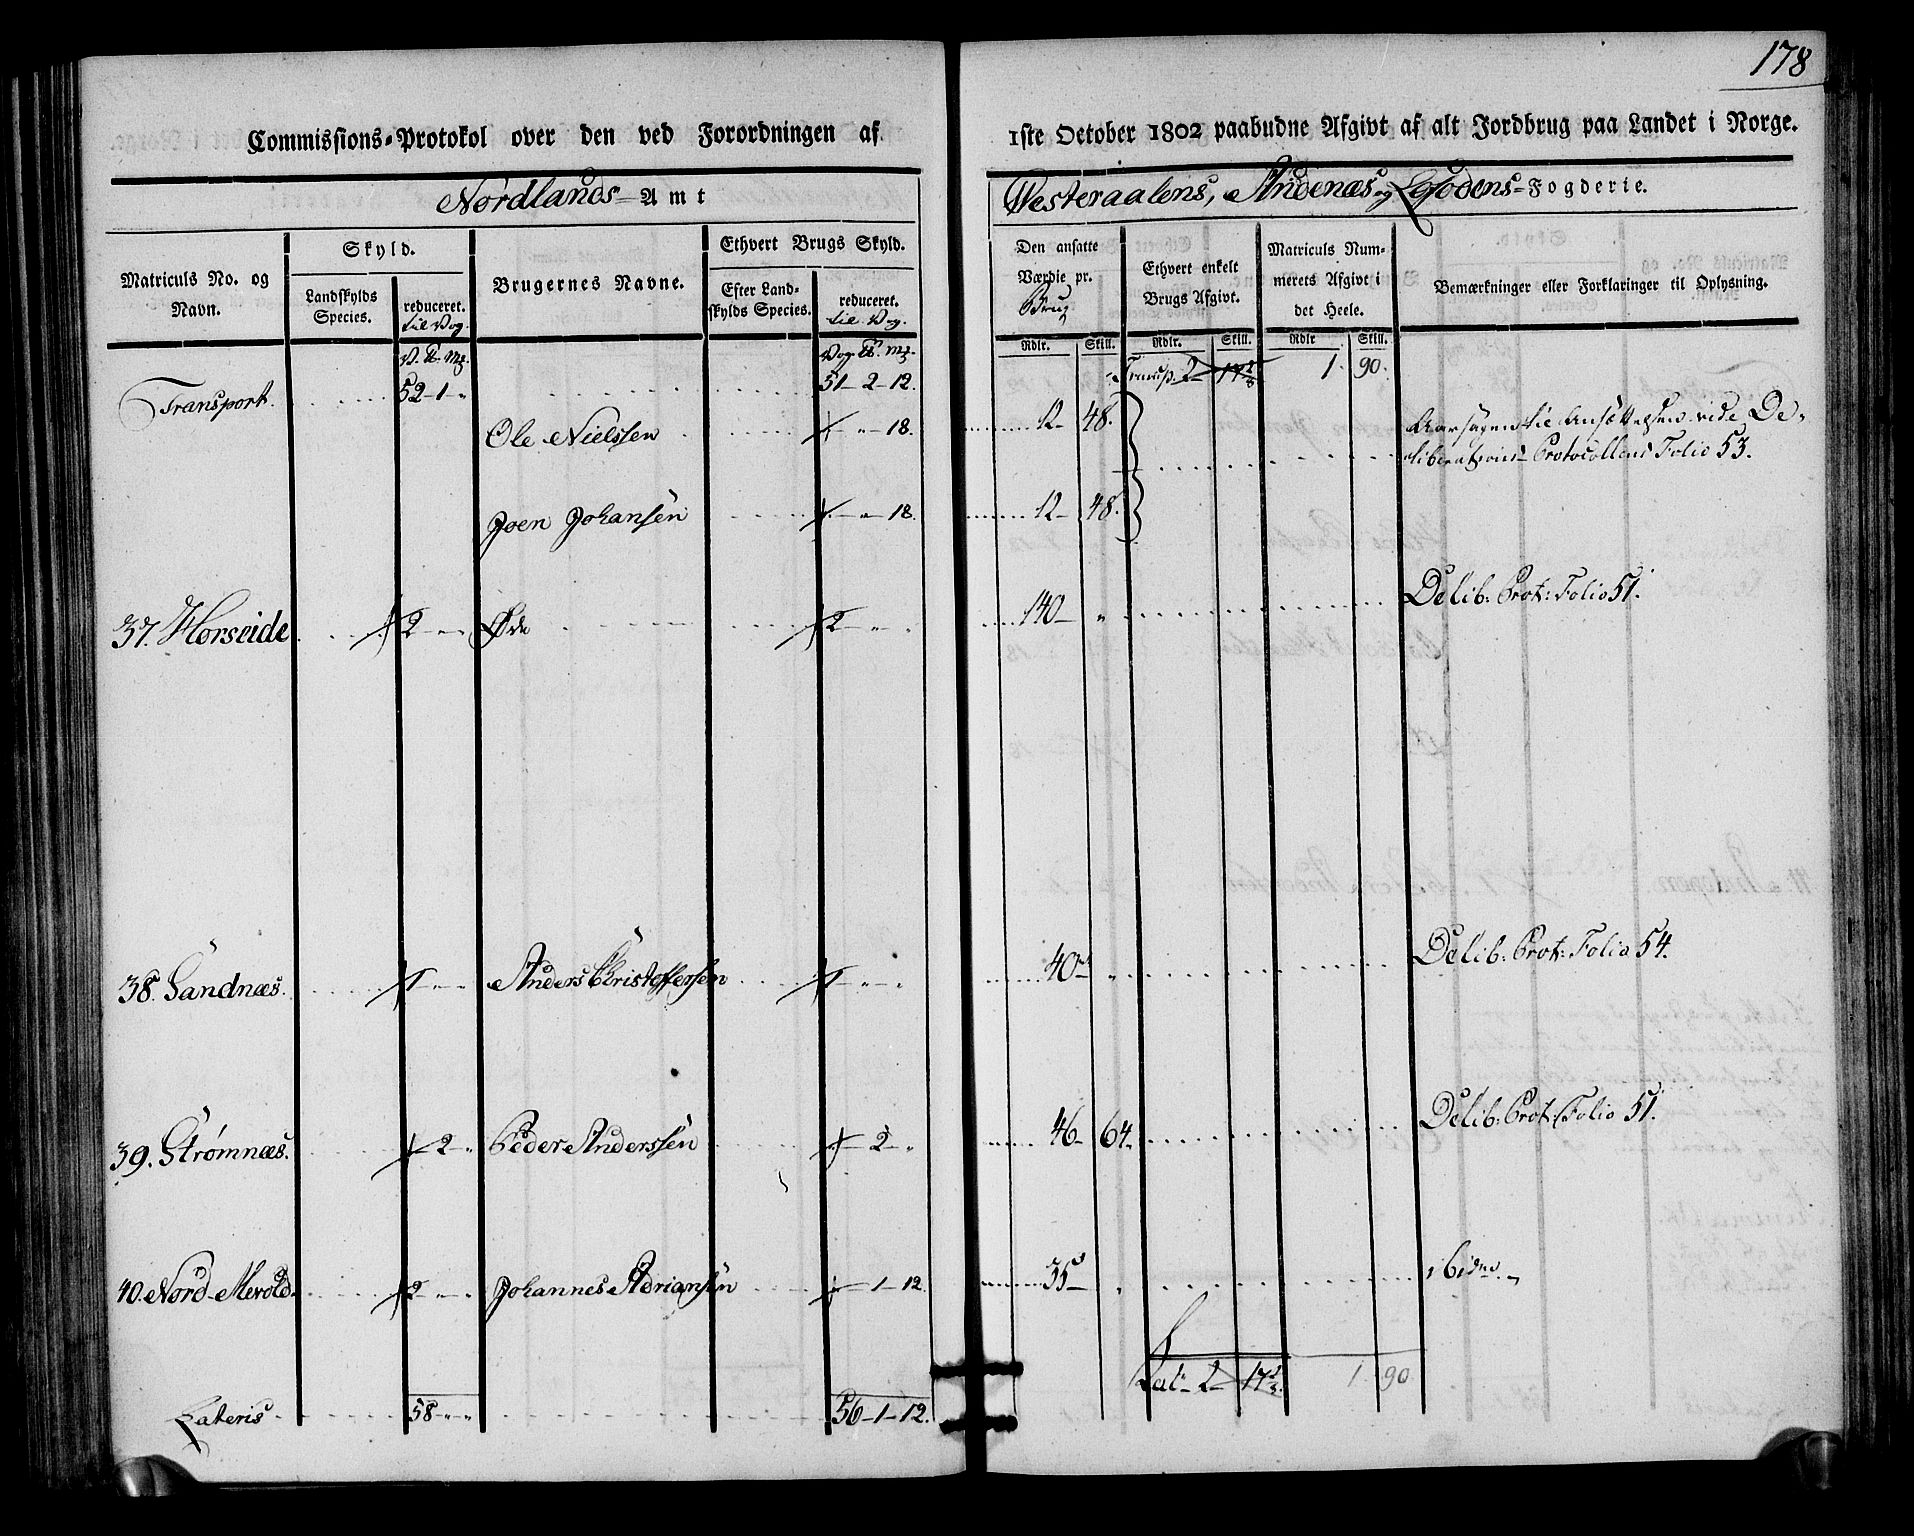 178
Commissions-Protokol over den ved Forordningen af 1ste October 1802 paabudne Afgivt af alt Jordbrug paa Landet i Norge.
Nordlands Amt
Westeraalens, Andenæs og Lofodens Fogderie.
Matriculs No. og Navn.
Skyld.
Landskylds Species.
reduceret. til Vog.
Brugernes Navne.
Ethvert Brugs Skyld.
Efter Landskylds Species.
reduceret. til Vog.
Den ansatte Værdie pr. Brug
Ethvert enkelt Brugs Afgivt.
Matriculs Nummerets Afgivt i det Heele.
Bemærkninger eller Forklaringer til Oplysning.
Rdlr. Skill. Rdlr. Skill. Rdlr Skill.
Transport. 52-1-" 51-2-12. Transp. 2 17 2/3 1. 90.
Ole Nielssen "-18. 12- 48. Aarsagen til Ansættelsen vide De-
liberations Protocollens Folio 53.
Joen Johansen "-18. 12- 48.
37. Horseide 2-"-" Øde 2-"-" 140- " Delib: Prot: Folio 51.
38. Sandnæs. 1-"-" Anders Christoffersen 1-"-" 40- " Delib: Prot: Folio 54.
39. Strømnæs. -2-" Peder Anderssen -2-" 46- 64- Delib: Prot: Folio 51.
40. Nord-Mevold. 2-"-" Johannes Adriansen -1-12. 35- " ibidem
Lateris 58-"-" 56-1-12. Lat. 2- 17 2/3. 1. 90